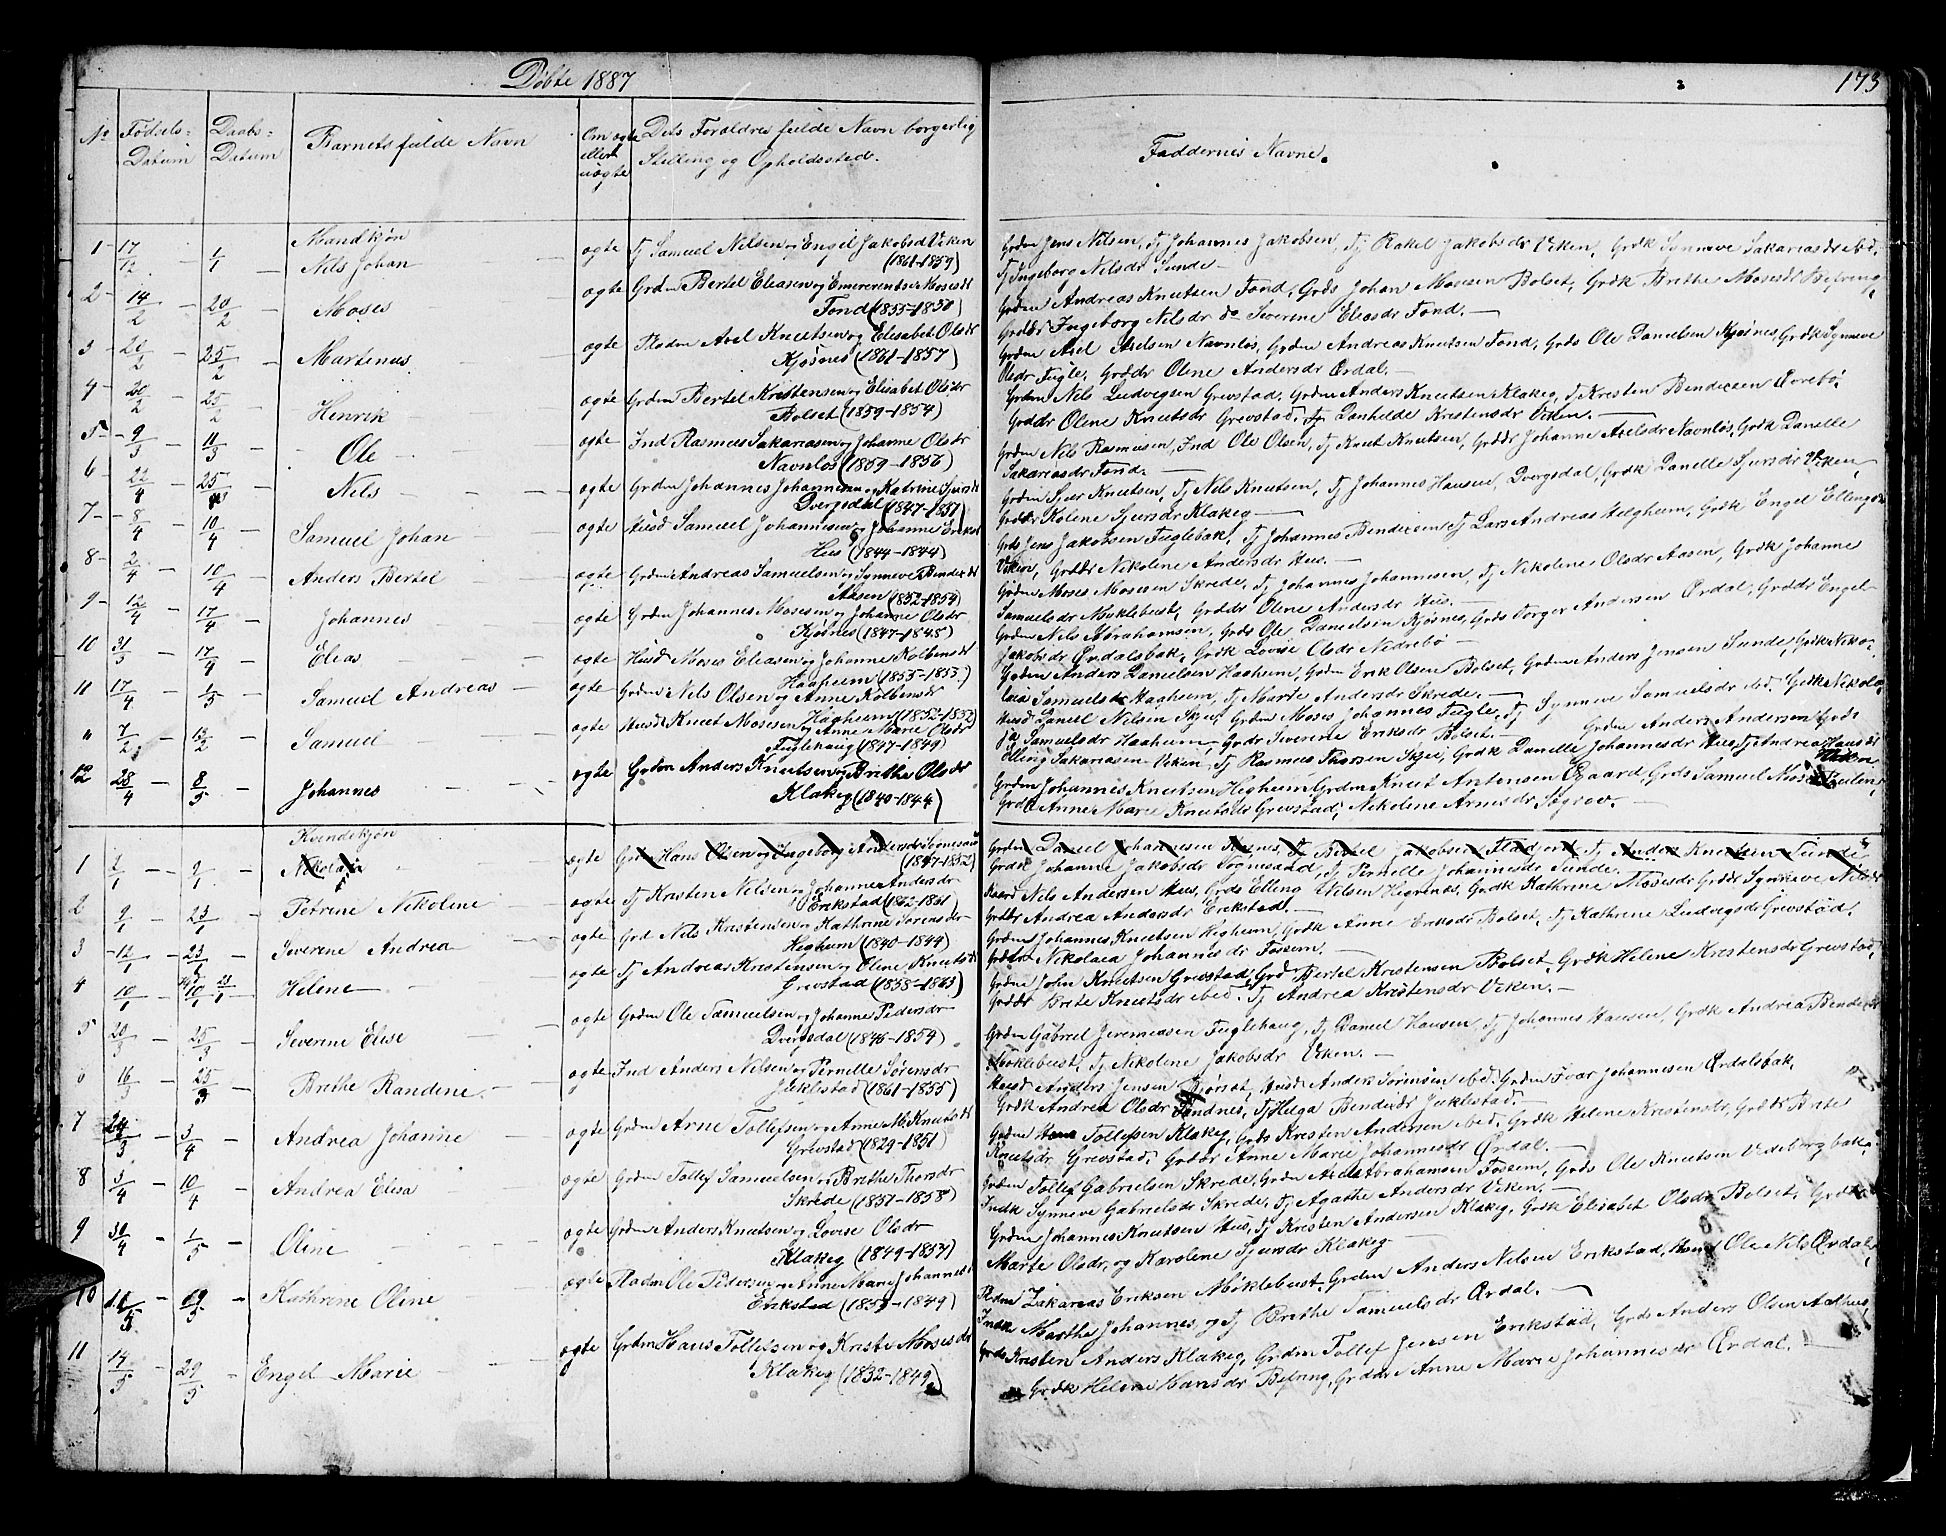 Døbte 1887
173
No
Fødsels-
Datum
Daabs-
Datum
Barnets fulde Navn
Om ægte
eller
uægte
Dets Forældres fulde Navn borgerlig
Stilling og Opholdssted.
Faddernes Navne.
Mandkjøn
1 17/12 1/1 Nils Johan ægte Tj Samuel Nilsen og Engel Jakobsd Viken
(1861-1859)
Grdm Jens Nilsen, Tj Johannes Jakobsen, Tj Rakel Jakobsdr Viken, Grdk Synneve Sakariasdr ibd.
Tj Ingeborg Nilsdr Sunde
2 14/2 20/2 Moses ægte Grdm Bertel Eleasen og Emerentse Mosesdr
Fond (1855-1850)
Grdm Andreas Knutsen Fond, Grds Johan Mosesen Bolset, Grdk Brethe Mosesdr Befring,
Grddr Ingeborg Nilsdr do Severine Eleasdr Fond.
3 20/2 25/2 Martinus ægte Pladsm Axel Knutsen og Elisabet Olsdr
Kjøsnes (1861-1857)
Grdm Axel Axelsen Navnløs, Grdm Andreas Knutsen Fond, Grds Ole Danielsen Kjøsnes, Grdk Synneve
Olsdr Fugle, Grddr Oline Andersdr Ørdal.
4 20/2 25/2 Henrik ægte Grdm Bertel Kristensen og Elisabet Olsdr
Bolset (1859-1854)
Grdm Nils Ludvigsen Grevstad, Grdm Anders Knutsen Klakeg, Tj Kristen Bendixen Øvrebø,
Grddr Oline Knutsdr Grevstad, Tj Danhilde Kristensdr Viken.
5 9/3 11/3 Ole ægte Ind Rasmus Sakariasen og Johanne Olsdr
Navnløs (1859-1856)
Grdm Nils Rasmusen, Ind Ole Olsen, Tj Knut Knutsen, Grddr Johanne Axelsdr Navnløs, Grdk Danelle
Sakariasdr Fond.
6 22/4 25/ Nils ægte Grdm Johannes Johannesen og Katrine Sjursdr
Dvergsdal (1847-1851)
Grdm Sjur Knutsen, Tj Nils Knutsen, Tj Johannes Hansen, Dvergsdal, Grdk Danelle Sjursdr Viken,
Grddr Kolene Sjursdr Klakeg
7 8/4 10/4 Samuel Johan ægte Husd Samuel Johannesen og Johanne Eriksd
Hus (1844-1844)
Grds Jens Jakobsen Fuglebak, Tj Johannes Bendixsen Tj Lars Andreas Helgheim, Grdk Engel Ellingsdr
Viken, Grddr Nikoline Andersdr Hus.
8 2/4 10/4 Anders Bertel ægte Grdm Andreas Samuelsen og Synneve Bendixdr
Aasen (1852-1854)
Grdm Moses Mosesen Skrede, Tj Johannes Johannesen, Tj Nikoline Olsdr Aasen, Grdk Johanne
Samuelsdr Myklebust, Grddr Oline Andersdr Hus.
9 12/4 17/4 Johannes ægte Grdm Johannes Mosesen og Johanne Olsdr
Kjøsnes (1847-1848)
Grdm Nils Abrahamsen, Grds Ole Danielsen Kjøsnes, Grds Torger Andersen Ørdal, Grddr Engel
Jakobsdr Ørdalsbak, Grdk Lovise Olsdr Nedrebø
10 31/3 17/4 Elias ægte Husd Moses Eleasen og Johanne Kolbensdr
Haaheim (1855-1853)
Grdm Anders Danielsen Haaheim, Grdm Erik Olsen Bolset, Grdm Anders Jensen Sunde, Grdk Niko-
laia Samuelsdr Haaheim, Tj Marte Andersdr Skrede.
11 17/4 1/5 Samuel Andreas ægte Grdm Nils Olsen og Anne Kolbensdr
Haaheim (1852-1852)
Husd Daniel Nilsen Skjei, Grdm Moses Johannes Fugle, Tj Synneve Samuelsdr ibd. Grdk Nikola
ja Samuelsdr Haaheim, Grdr Severine Eriksdr Bolset.
" 7/2 13/2 Samuel ægte Husd Knut Mosesen og Anne Marie Olsdr
Fuglehaug (1847-1849)
Grdm Anders Andersen Grds
Elling Sakariasen Viken, Tj Rasmus Thorsen Skjei, Grdk Danelle Johannesdr Hus, Tj Andrea Hansdr
Viken
12 28/4 8/5 Johannes ægte Grdm Anders Knutsen og Brithe Olsdr
Klakeg (1840-1844)
Grdm Johannes Knutsen Hegheim, Grdm Knut Antonsen Øgaard, Grds Samuel Moses
Grdk Anne Marie Knutsdr Grevstad, Nikoline Arnesdr Søgrov.
Kvindekjøn
1 2/1 9/1 Nikolaia ægte Grd Hans Olsen og Ingeborg Andersdr Sognesand
(1847-1852)
Grdm Daniel Johannesen Kosnes, Tj Bertel Jakobsen Flad, Tj Anders Knutsen Sunde
Grdk Johanne Jakobsdr Sognesand, Tj Pernelle Johannesdr Sunde.
2 9/1 23/1 Petrine Nikoline ægte Tj Kristen Nilsen og Johanne Andersdr
Erikstad (1862-1861)
Nils Andersen Hus, Grds Elling Nilsen Hegrenes, Grdk Kathrine Mosesdr Grddr Synneve Nilsdr
Grddr Andrea Andersdr Erikstad.
3 12/1 23/1 Severine Andrea ægte Grd Nils Kristensen og Kathrine Sørensdr
Hegheim (1840-1844)
Grdm Johannes Knutsen Hegheim, Grdk Anne Eriksdr Bolset, Tj Kathrine Ludvigsdr Grevstad,
Grddr Nikolaia Johannesdr Fossem.
4 10/1 23/1 Helene ægte Tj Andreas Kristensen og Oline Knutsdr
Grevstad (1858-1863)
Grdm John Knutsen Grevstad, Grd Bertel Kristensen Bolset, Grdk Helene Kristensdr Grevstad,
Grddr Brite Knutsdr ibed. Tj Andrea Kristensdr Viken.
5 20/3 25/3 Severine Elise ægte Grdm Ole Samuelsen og Johanne Pedersdr
Dvergsdal (1846-1854)
Grdm Gabriel Jeremiasen Fuglehaug, Tj Daniel Hansen, Tj Johannes Hansen, Grdk Andrea Bendixdr
Myklebust, Tj Nikoline Jakobsdr Viken.
6 16/3 25/3 Brithe Randine ægte Ind Anders Nilsen og Pernille Sørensdr
Juklestad (1861-1855)
Husd Anders Jensen Bjørset, Husd Anders Sørensen ibed. Grdm Ivar Johannesen Ørdalsbak,
Grdk Andrea Olsdr Sandnes, Tj Helga Bendixdr Juklestad.
7 24/3 3/4 Andrea Johanne ægte Grdm Arne Tollefsen og Anne M. Knutsdr
Grevstad (1829-1851)
Grdm Hans Tollefsen Klakeg, Grds Kristen Andersen ibed. Grdk Helene Kristensdr, Grddr Brite
Knutsdr Grevstad, Grddr Anne Marie Johannesdr Ørdal.
8 3/4 10/4 Andrea Elisa ægte Grdm Tollef Samuelsen og Brithe Thorsdr
Skrede (1851-1858)
Grdm Tollef Gabrielsen Skrede, Grdm Axel Abrahamsen Fossem, Grds Ole Knutsen Vedeborgbak,
Indk Synneve Gabrielsdr Skrede, Tj Agathe Andersdr Viken.
9 30/4 1/5 Oline ægte Grdm Anders Knutsen og Lovise Olsdr
Klakeg (1849-1853)
Grdm Johannes Knutsen Hus, Tj Kristen Andersen Klakeg, Grdk Elisabet Olsdr Bolset, Grddr
Marte Olsdr, og Karoline Sjursdr Klakeg
10 11/5 19/5 Kathrine Oline ægte Pladsm Ole Pedersen og Anne Marie Johannesdr
Erikstad (1853-1849)
Pladsm Zakarias Eriksen Myklebust, Grdm Anders Nilsen Erikstad, Ole Nils Ørdal,
Indk Marthe Johannes, og Tj Brithe Samuelsdr Ørdal.
11 14/5 29/5 Engel Marie ægte Grdm Hans Tollefsen og Kristi Mosesdr
Klakeg (1832-1849)
Grds Kristen Anders Klakeg, Grdm Tollef Jensen Erikstad, Grds Anders Olsen Aarhus,
Grdk Helene Hansdr Befring, Grddr Anne Marie Johannesdr Ørdal.